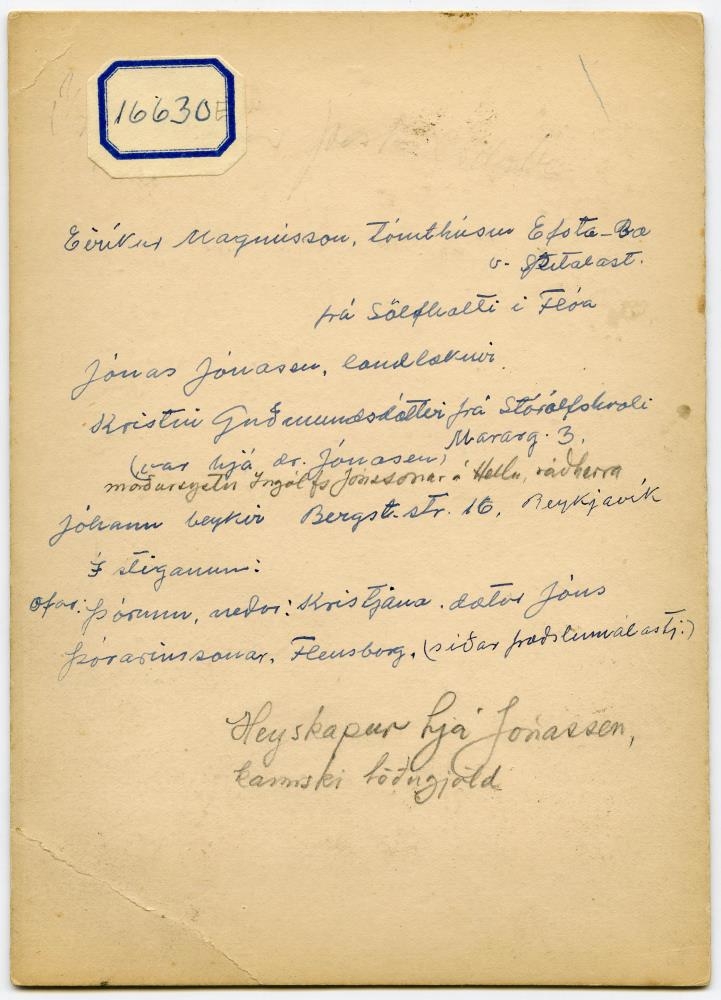 16630
Eiríkur Magnússon, tómthúsm Efsta-Bæ
v. Spítalast.
frá Sölfholti í Flóa
Jónas Jónassen, landlæknir
Kristín Guðmundsdóttir frá Stórólfshvoli
(var hjá dr. Jónasen) Mararg. 3.
móðursystir Ingólfs Jónssonar á Hellu, ráðherra
Jóhann beykir Bergst.str. 16, Reykjavík
Í stiganum:
ofar: Þórunn, neðar: Kristjana. dætur Jóns
Þórarinssonar, Flensborg. (síðar fræðslumálastj.)
Heyskapur hjá Jónassen,
kannski töðugjöld